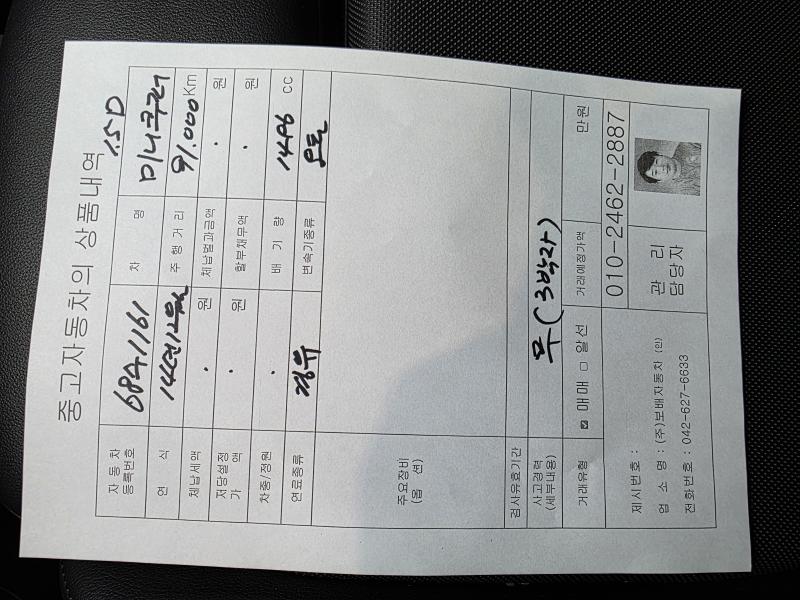 중고자동차의 상품내역
1.5D
자동차등록번호 68수1161 차 명 미니쿠퍼
연 식 14년12월 주행거리 91,000Km
체납세액 . 원 체납벌과금액 . 원
저당설정가 액 . 원 할부채무액 . 원
차종/정원 . 배 기 량 1496 CC
연료종류 경유 변속기종류 오토
주요장비
(옵 션)
검사유효기간
사고경력
(세부내용) 무(3박자)
거래유형 ☑ 매매 □ 알선 거래예정가액 만원
제시번호 : 010-2462-2887
업 소 명 : (주)보배자동차 (인)
전화번호 : 042-627-6633
관 리
담당자